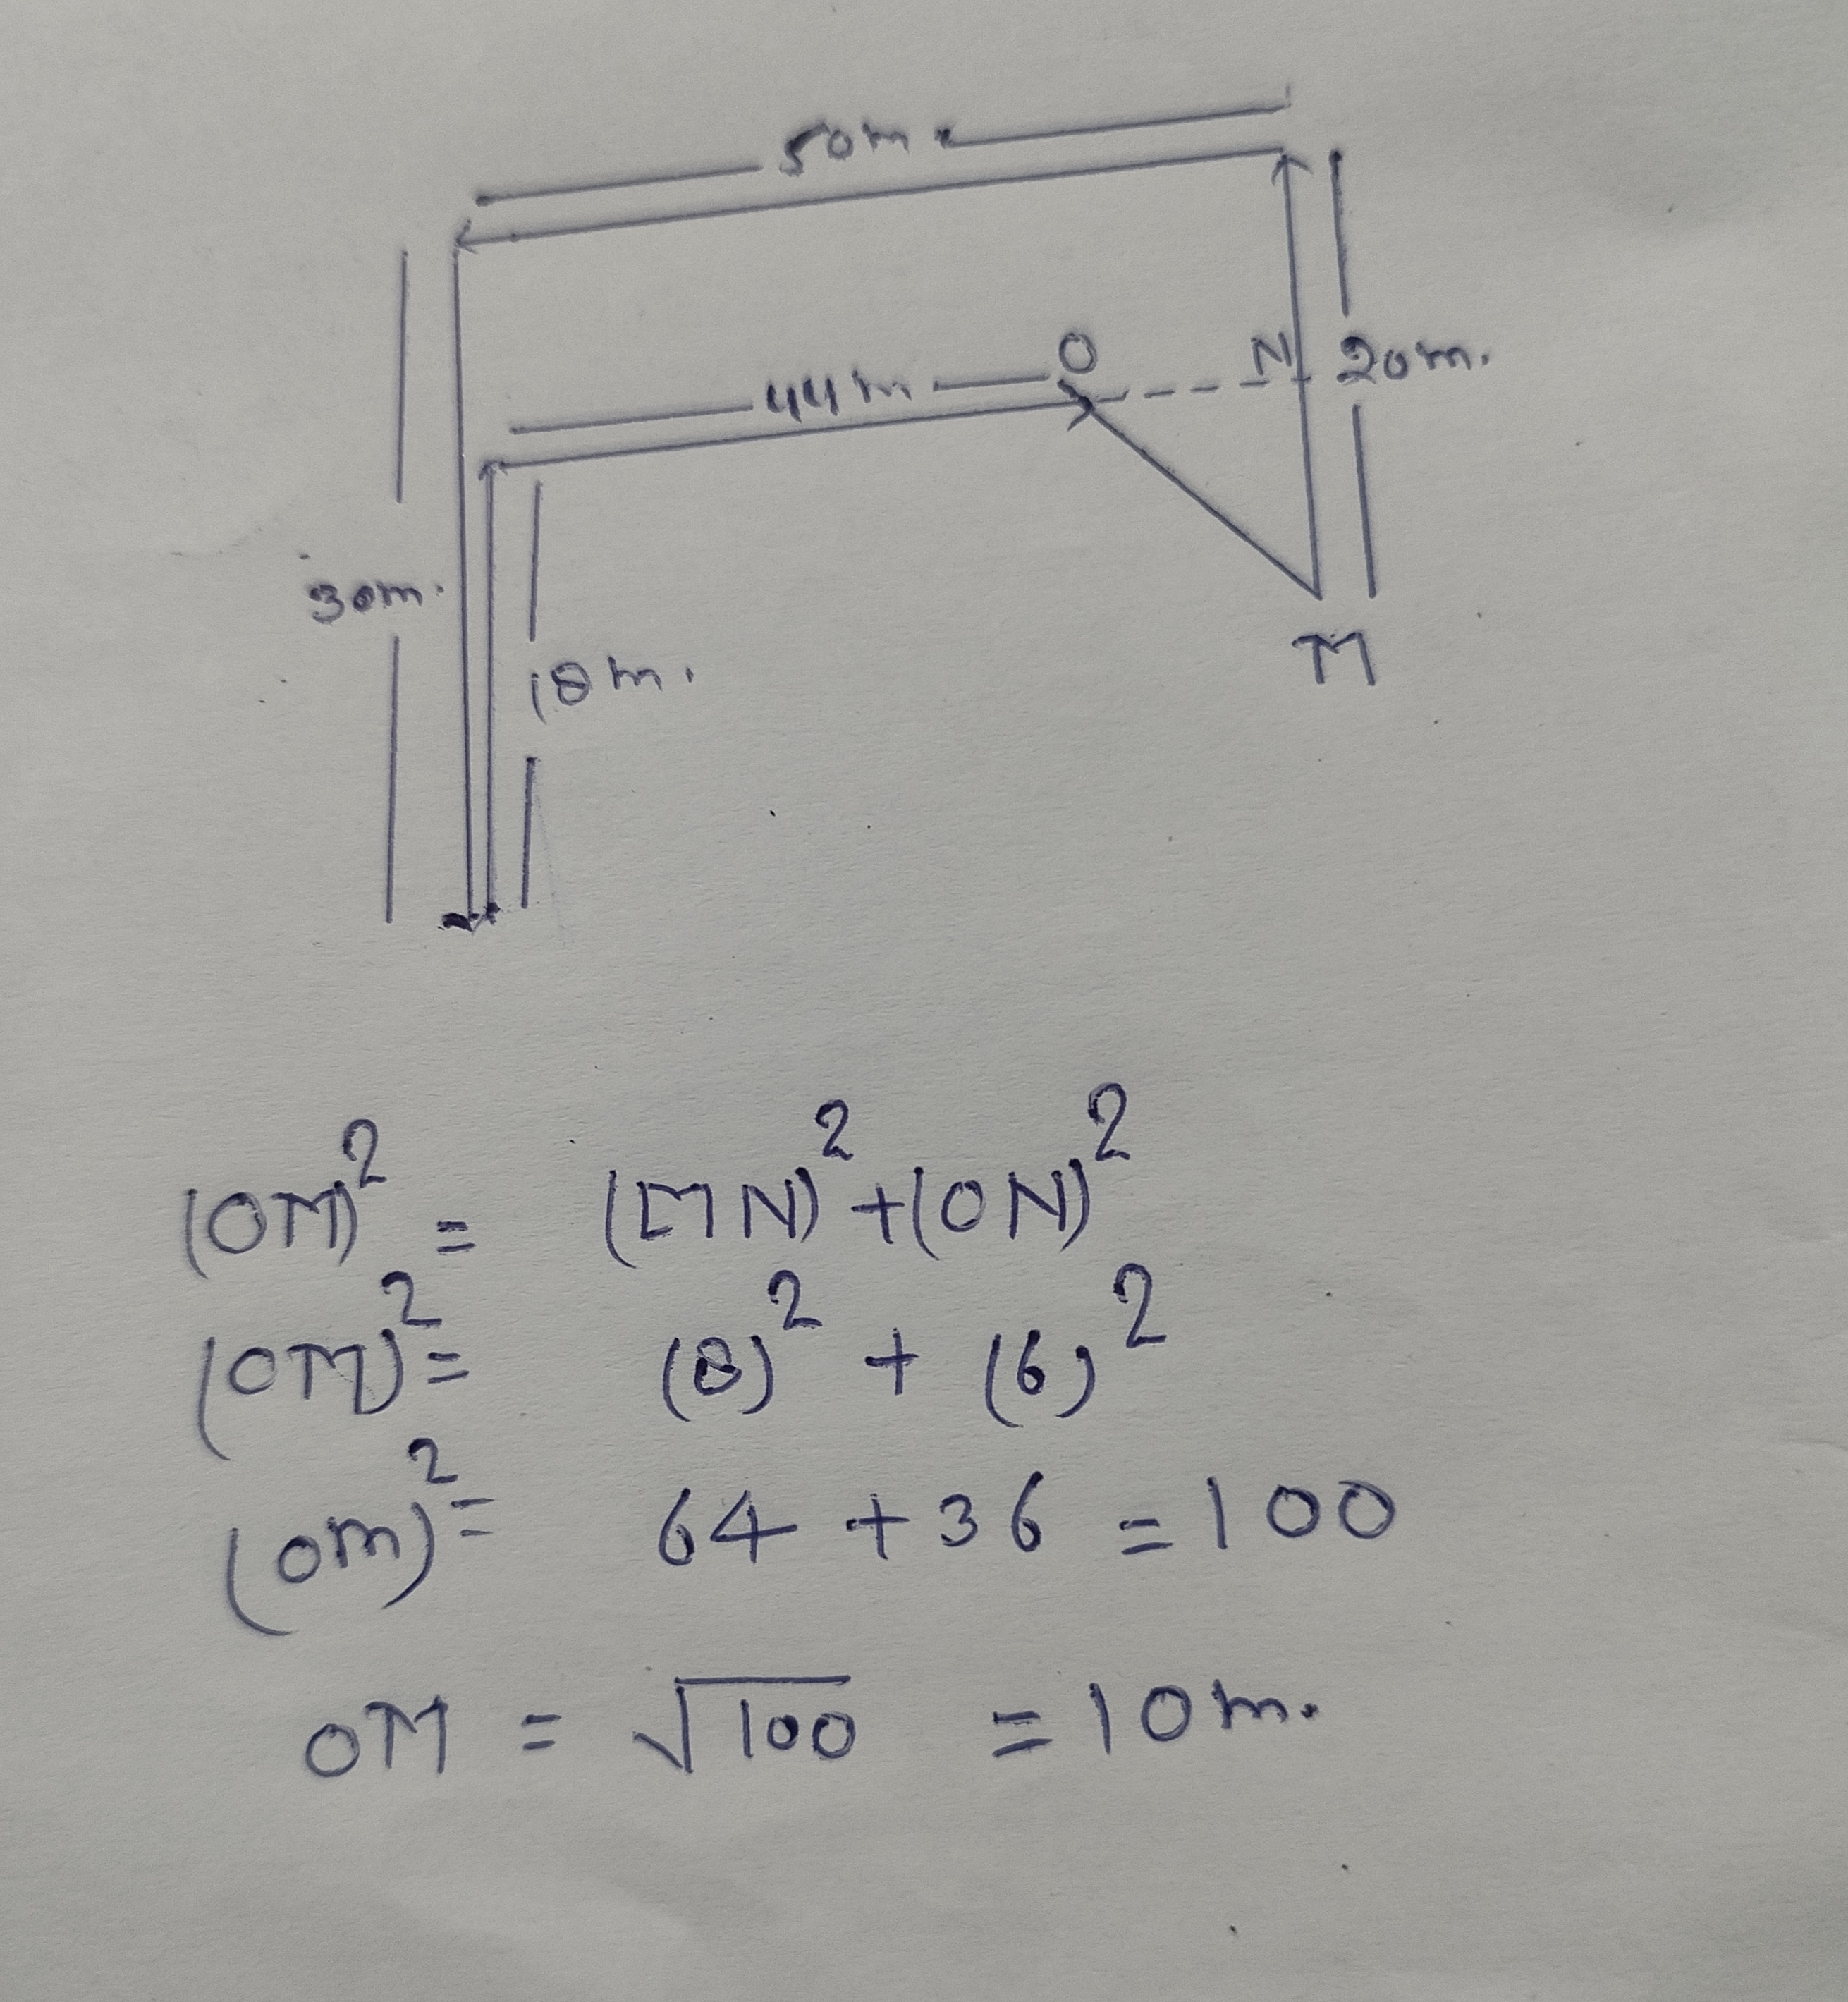 50m
O
N
20m.
44m
30m.
18m.
M
(OM)² = (MN)² + (ON)²
(OM)² = (8)² + (6)²
(om)² = 64 + 36 = 100
OM = √100 = 10m.